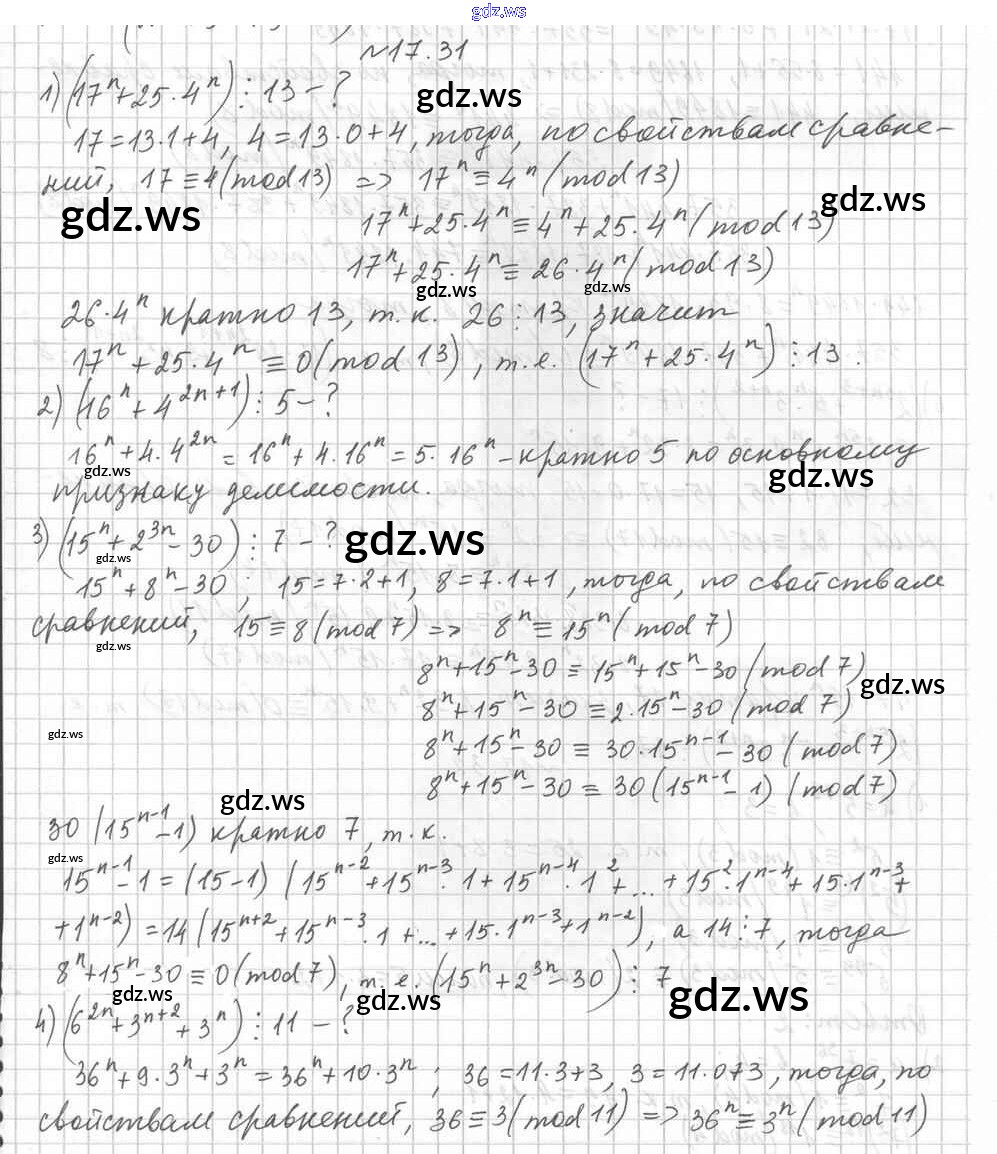 gdz.ws
№17.31
1) (17ⁿ+25·4ⁿ)⋮13-?
gdz.ws
17=13·1+4, 4=13·0+4, тогда, по свойствам сравне-
ний, 17≡4(mod13) => 17ⁿ≡4ⁿ(mod13)
gdz.ws gdz.ws
17ⁿ+25·4ⁿ≡4ⁿ+25·4ⁿ(mod13)
17ⁿ+25·4ⁿ≡26·4ⁿ(mod13)
gdz.ws gdz.ws
26·4ⁿ кратно 13, т.к. 26⋮13, значит
17ⁿ+25·4ⁿ≡0(mod13), т.е. (17ⁿ+25·4ⁿ)⋮13.
2) (16ⁿ+4²ⁿ⁺¹)⋮5-?
16ⁿ+4·4²ⁿ=16ⁿ+4·16ⁿ=5·16ⁿ-кратно 5 по основному
gdz.ws gdz.ws
признаку делимости.
3) (15ⁿ+2³ⁿ-30)⋮7-?
gdz.ws gdz.ws
15ⁿ+8ⁿ-30; 15=7·2+1, 8=7·1+1, тогда, по свойствам
сравнений, 15≡8(mod7) => 8ⁿ≡15ⁿ(mod7)
gdz.ws
8ⁿ+15ⁿ-30≡15ⁿ+15ⁿ-30(mod7)
gdz.ws
8ⁿ+15ⁿ-30≡2·15ⁿ-30(mod7)
gdz.ws
8ⁿ+15ⁿ-30≡30·15ⁿ⁻¹-30(mod7)
8ⁿ+15ⁿ-30≡30(15ⁿ⁻¹-1)(mod7)
gdz.ws
30(15ⁿ⁻¹-1) кратно 7, т.к.
gdz.ws
15ⁿ⁻¹-1=(15-1)(15ⁿ⁻²+15ⁿ⁻³·1+15ⁿ⁻⁴·1²+...+15²·1ⁿ⁻⁴+15·1ⁿ⁻³+
+1ⁿ⁻²)=14(15ⁿ⁺²+15ⁿ⁻³·1+...+15·1ⁿ⁻³+1ⁿ⁻²), а 14⋮7, тогда
8ⁿ+15ⁿ-30≡0(mod7), т.е. (15ⁿ+2³ⁿ-30)⋮7
gdz.ws gdz.ws gdz.ws
4) (6²ⁿ+3ⁿ⁺²+3ⁿ)⋮11-?
36ⁿ+9·3ⁿ+3ⁿ=36ⁿ+10·3ⁿ; 36=11·3+3, 3=11·0+3, тогда, по
свойствам сравнений, 36≡3(mod11) => 36ⁿ≡3ⁿ(mod11)